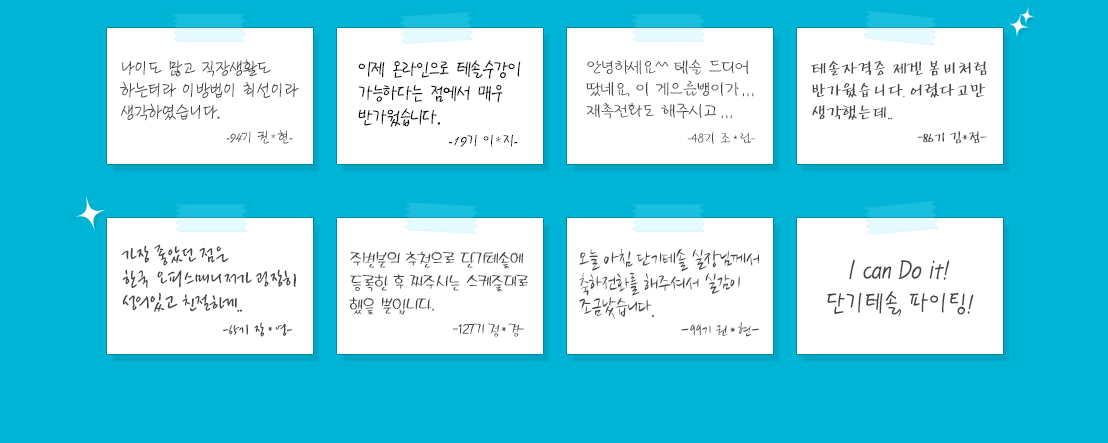 나이도 많고 직장생활도
하는터라 이방법이 최선이라
생각하였습니다.
-94기 권*현-
이제 온라인으로 테솔수강이
가능하다는 점에서 매우
반가웠습니다.
-19기 이*지-
안녕하세요^^ 테솔 드디어
땄네요, 이 게으름뱅이가...
재촉전화도 해주시고...
-48기 조*린-
테솔자격증 제겐 봄비처럼
반가웠습니다. 어렸다고만
생각했는데..
-86기 김*점-
가장 좋았던 점은
한국 오피스매니저가 굉장히
성의있고 친절하게..
-65기 장*영-
주변분의 추천으로 단기테솔에
등록한 후 짜주시는 스케줄대로
했을 뿐입니다.
-127기 정*강-
오늘 아침 단기테솔 실장님께서
축하전화를 해주셔서 실감이
조금났습니다.
-99기 권*현-
I can Do it!
단기테솔, 파이팅!